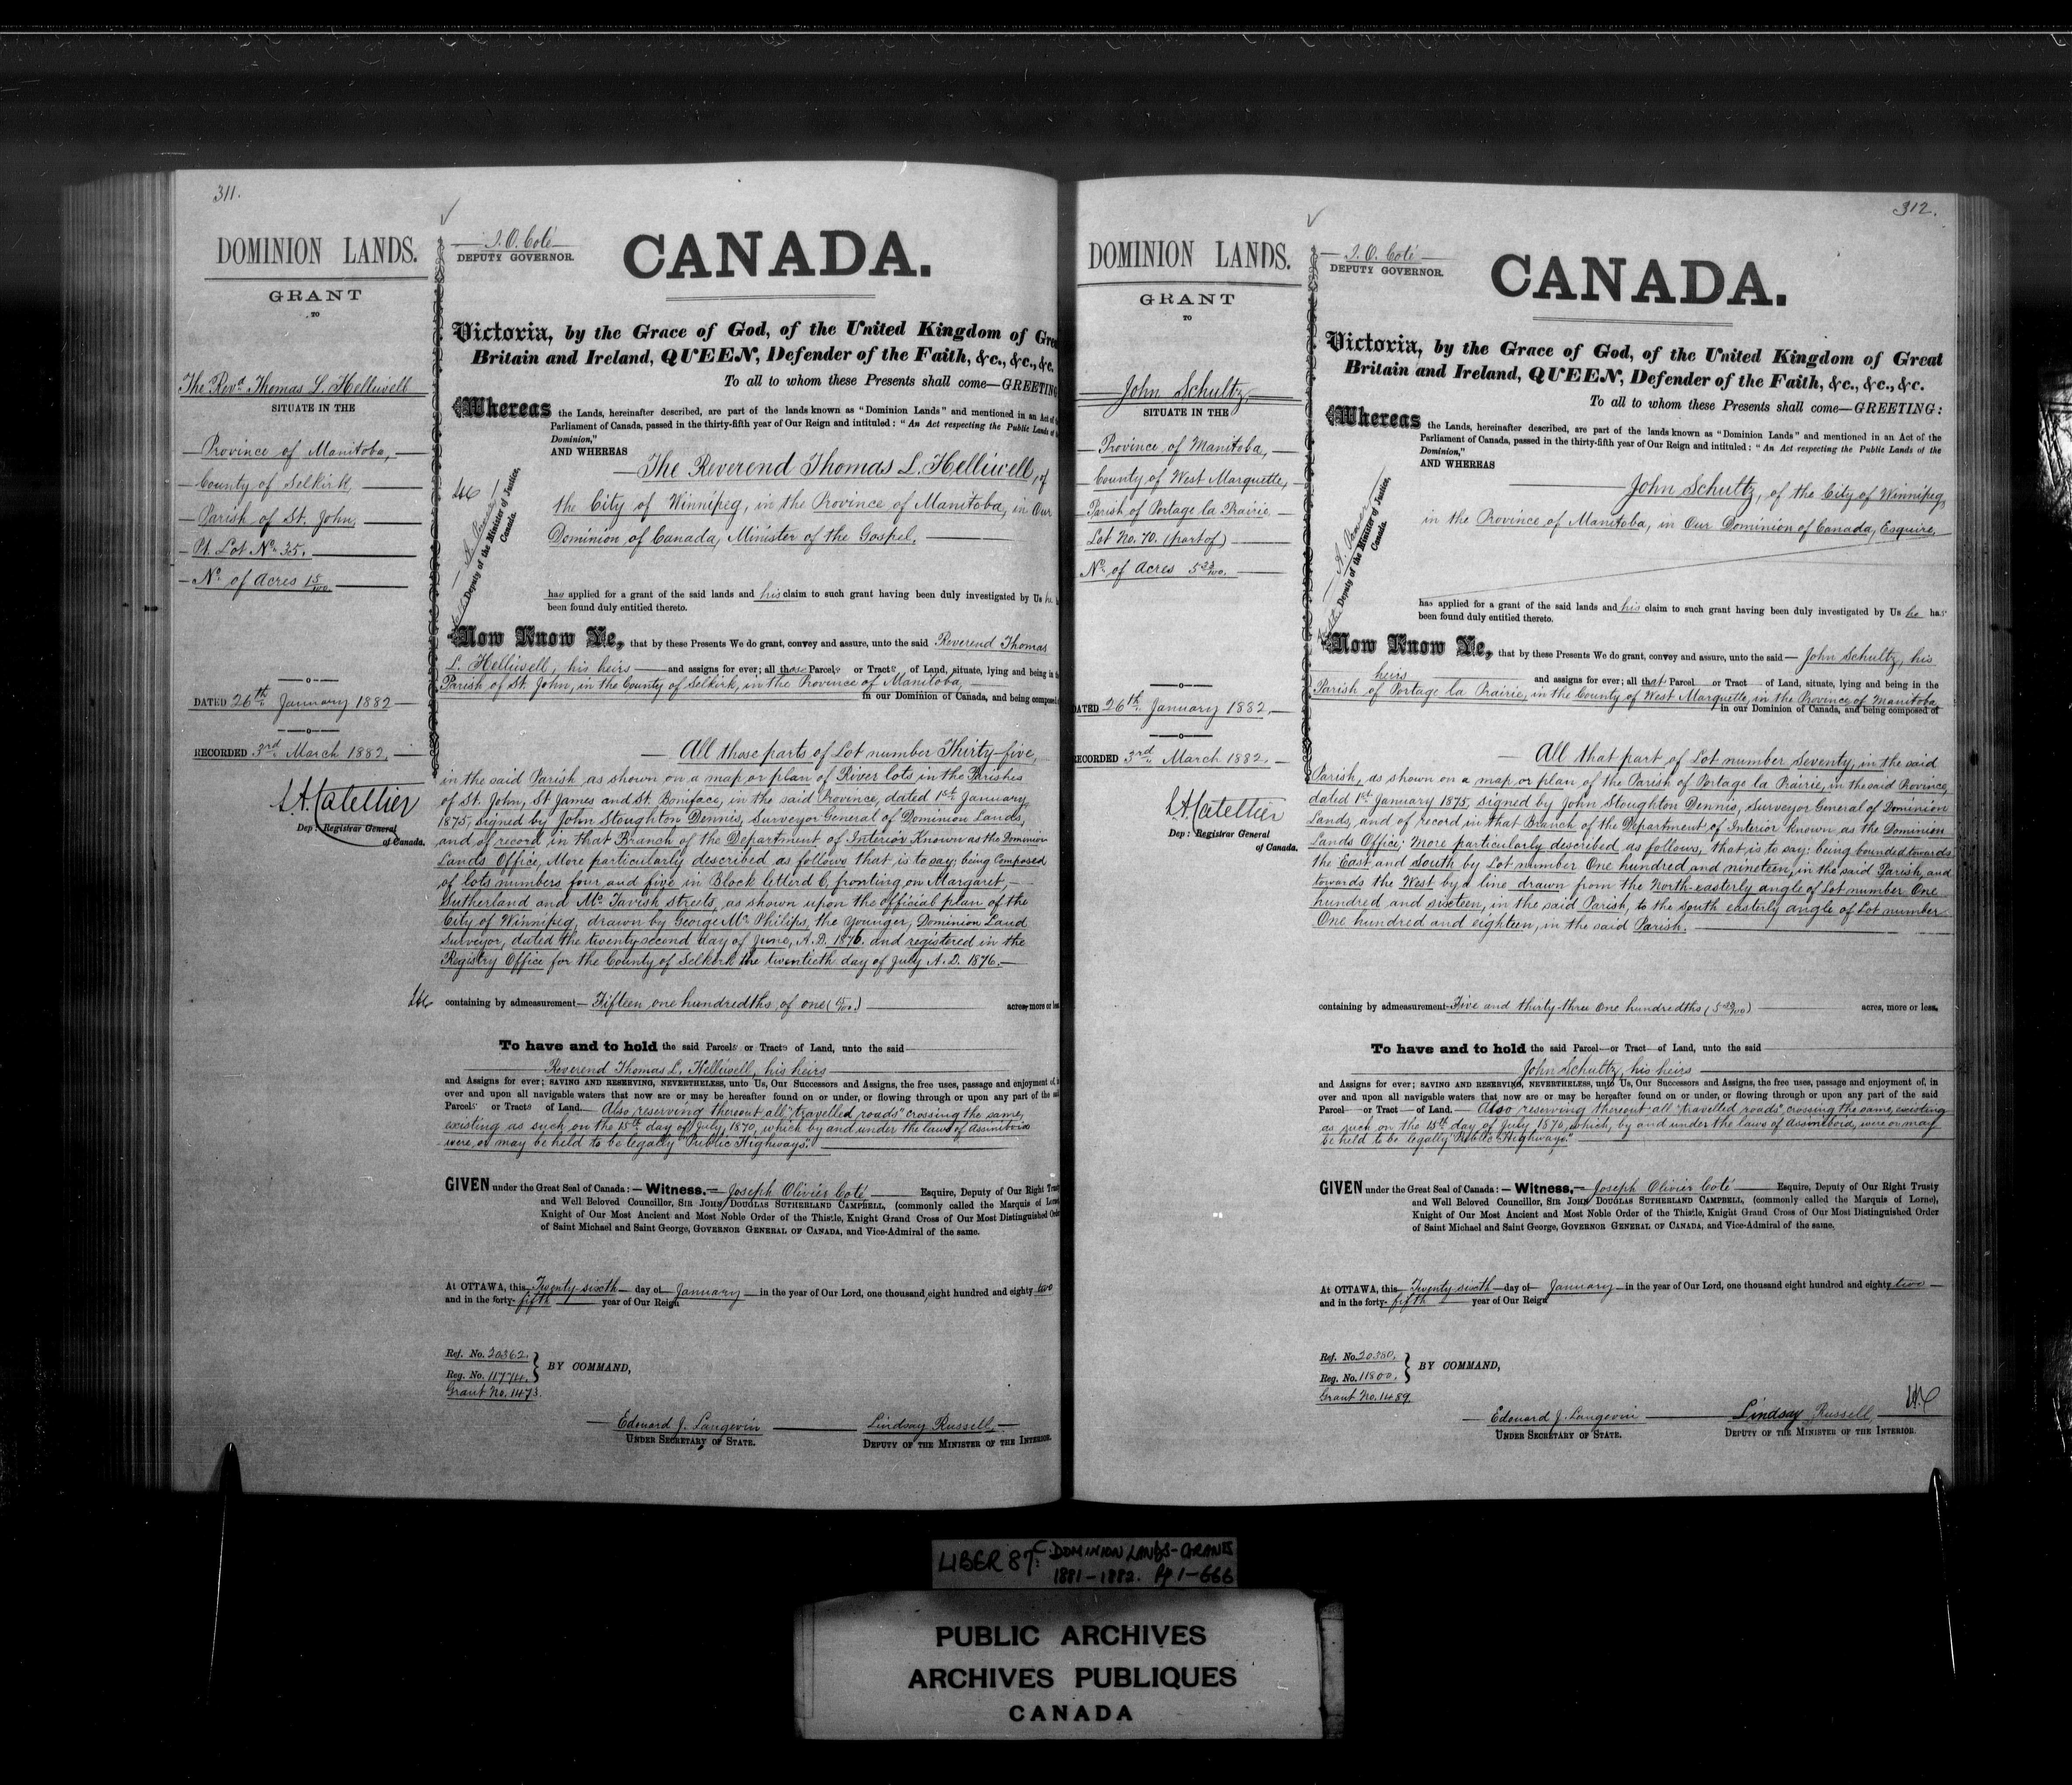 311.
DOMINION LANDS.
GRANT
TO
The Revd. Thomas L. Helliwell
SITUATE IN THE
Province of Manitoba,
County of Selkirk,
Parish of St. John,
Pt. Lot No. 35.
No. of Acres 15/100
DATED 26th January 1882
RECORDED 3rd March 1882.
L.A. Catellier
Dep: Registrar General
of Canada.
J.O. Coté
DEPUTY GOVERNOR.
CANADA.
Victoria, by the Grace of God, of the United Kingdom of Great
Britain and Ireland, QUEEN, Defender of the Faith, &c., &c., &c.
To all to whom these Presents shall come—GREETING
Whereas the Lands, hereinafter described, are part of the lands known as "Dominion Lands" and mentioned in an Act of
Parliament of Canada, passed in the thirty-fifth year of Our Reign and intituled: "An Act respecting the Public Lands of
Dominion,"
AND WHEREAS
The Reverend Thomas L. Helliwell, of
the City of Winnipeg, in the Province of Manitoba, in Our
Dominion of Canada, Minister of the Gospel.
Deputy of the Minister of Justice,
Canada.
has applied for a grant of the said lands and his claim to such grant having been duly investigated by Us he
been found duly entitled thereto.
Now Know Ye, that by these Presents We do grant, convey and assure, unto the said Reverend Thomas
L. Helliwell, his heirs and assigns for ever; all those Parcels or Tracts, of Land, situate, lying and being in
Parish of St. John, in the County of Selkirk, in the Province of Manitoba,
in our Dominion of Canada, and being composed
All those parts of Lot number Thirty-five,
in the said Parish as shown on a map or plan of River lots in the Parishes
of St. John, St James and St. Boniface, in the said Province, dated 1st January,
1875, signed by John Stoughton Dennis, Surveyor General of Dominion Lands,
and of record in that Branch of the Department of Interior Known as the Dominion
Lands Office, More particularly described as follows that is to say; being Composed
of lots numbers four and five in Block letterd C, fronting on Margaret,
Sutherland and Mc Tavish Streets, as shown upon the official plan of the
City of Winnipeg, drawn by George Mc Philips, the younger, Dominion Land
Surveyor, dated the twenty-second day of June, A.D. 1876. and registered in the
Registry Office for the County of Selkirk the twentieth day of July A.D. 1876.
containing by admeasurement Fifteen one hundredths of one (15/100) acres, more or less
To have and to hold the said Parcels or Tracts of Land, unto the said
Reverend Thomas L. Helliwell, his heirs
and Assigns for ever; SAVING AND RESERVING, NEVERTHELESS, unto Us, Our Successors and Assigns, the free uses, passage and enjoyment of, in
over and upon all navigable waters that now are or may be hereafter found on or under, or flowing through or upon any part of the said
Parcels or Tracts of Land. Also reserving thereout all "travelled roads" crossing the same,
existing as such on the 15th day of July, 1870, which by and under the laws of Assiniboia
were, or may be held to be legally "Public Highways."
GIVEN under the Great Seal of Canada:—Witness, Joseph Olivier Coté Esquire, Deputy of Our Right Trusty
and Well Beloved Councillor, SIR JOHN DOUGLAS SUTHERLAND CAMPBELL, (commonly called the Marquis of Lorne),
Knight of Our Most Ancient and Most Noble Order of the Thistle, Knight Grand Cross of Our Most Distinguished Order
of Saint Michael and Saint George, GOVERNOR GENERAL OF CANADA, and Vice-Admiral of the same.
At OTTAWA, this Twenty-sixth day of January in the year of Our Lord, one thousand eight hundred and eighty two
and in the forty-fifth year of Our Reign
Ref. No. 20362.
Reg. No. 11774.
Grant No. 1473.
BY COMMAND,
Edouard J. Langevin
UNDER SECRETARY OF STATE.
Lindsay Russell,
DEPUTY OF THE MINISTER OF THE INTERIOR.
312.
DOMINION LANDS.
GRANT
TO
John Schultz,
SITUATE IN THE
Province of Manitoba,
County of West Marquette,
Parish of Portage la Prairie
Lot No. 70. (part of)
No. of Acres 5 33/100.
DATED 26th January 1882.
RECORDED 3rd March 1882.
L.A. Catellier
Dep: Registrar General
of Canada.
J.O. Coté
DEPUTY GOVERNOR.
CANADA.
Victoria, by the Grace of God, of the United Kingdom of Great
Britain and Ireland, QUEEN, Defender of the Faith, &c., &c., &c.
To all to whom these Presents shall come—GREETING:
Whereas the Lands, hereinafter described, are part of the lands known as "Dominion Lands" and mentioned in an Act of the
Parliament of Canada, passed in the thirty-fifth year of Our Reign and intituled: "An Act respecting the Public Lands of the
Dominion,"
AND WHEREAS
John Schultz, of the City of Winnipeg,
in the Province of Manitoba, in Our Dominion of Canada, Esquire,
Deputy of the Minister of Justice,
Canada.
has applied for a grant of the said lands and his claim to such grant having been duly investigated by Us he has
been found duly entitled thereto.
Now Know Ye, that by these Presents We do grant, convey and assure, unto the said John Schultz, his
heirs and assigns for ever; all that Parcel or Tract of Land, situate, lying and being in the
Parish of Portage la Prairie, in the County of West Marquette, in the Province of Manitoba
in our Dominion of Canada, and being composed of
All that part of Lot number Seventy, in the said
Parish, as shown on a map or plan of the Parish of Portage la Prairie, in the said Province,
dated 1st January 1875, signed by John Stoughton Dennis, Surveyor General of Dominion
Lands, and of record in that Branch of the Department of Interior known as the Dominion
Lands Office; More particularly described as follows, that is to say: being bounded towards
the East and South by Lot number One hundred and nineteen, in the said Parish, and
towards the West by a line drawn from the North-easterly angle of Lot number One
hundred and sixteen, in the said Parish, to the south easterly angle of Lot number
One hundred and eighteen, in the said Parish.
containing by admeasurement Five and thirty-three one hundredths (5 33/100) acres, more or less.
To have and to hold the said Parcel or Tract of Land, unto the said
John Schultz, his heirs
and Assigns for ever; SAVING AND RESERVING, NEVERTHELESS, unto Us, Our Successors and Assigns, the free uses, passage and enjoyment of, in
over and upon all navigable waters that now are or may be hereafter found on or under, or flowing through or upon any part of the said
Parcel or Tract of Land. Also reserving thereout all "travelled roads", crossing the same, existing
as such on the 15th day of July 1870, which, by and under the laws of Assiniboia, were or may
be held to be legally "Public Highways."
GIVEN under the Great Seal of Canada:—Witness, Joseph Olivier Coté Esquire, Deputy of Our Right Trusty
and Well Beloved Councillor, SIR JOHN DOUGLAS SUTHERLAND CAMPBELL, (commonly called the Marquis of Lorne),
Knight of Our Most Ancient and Most Noble Order of the Thistle, Knight Grand Cross of Our Most Distinguished Order
of Saint Michael and Saint George, GOVERNOR GENERAL OF CANADA, and Vice-Admiral of the same.
At OTTAWA, this Twenty sixth day of January in the year of Our Lord, one thousand eight hundred and eighty two
and in the forty-fifth year of Our Reign
Ref. No. 20380.
Reg. No. 11800.
Grant No. 1489.
BY COMMAND,
Edouard J. Langevin
UNDER SECRETARY OF STATE.
Lindsay Russell,
DEPUTY OF THE MINISTER OF THE INTERIOR.
LIBER 87: C. DOMINION LANDS-GRANTS
1881-1882. Pp 1-666
PUBLIC ARCHIVES
ARCHIVES PUBLIQUES
CANADA